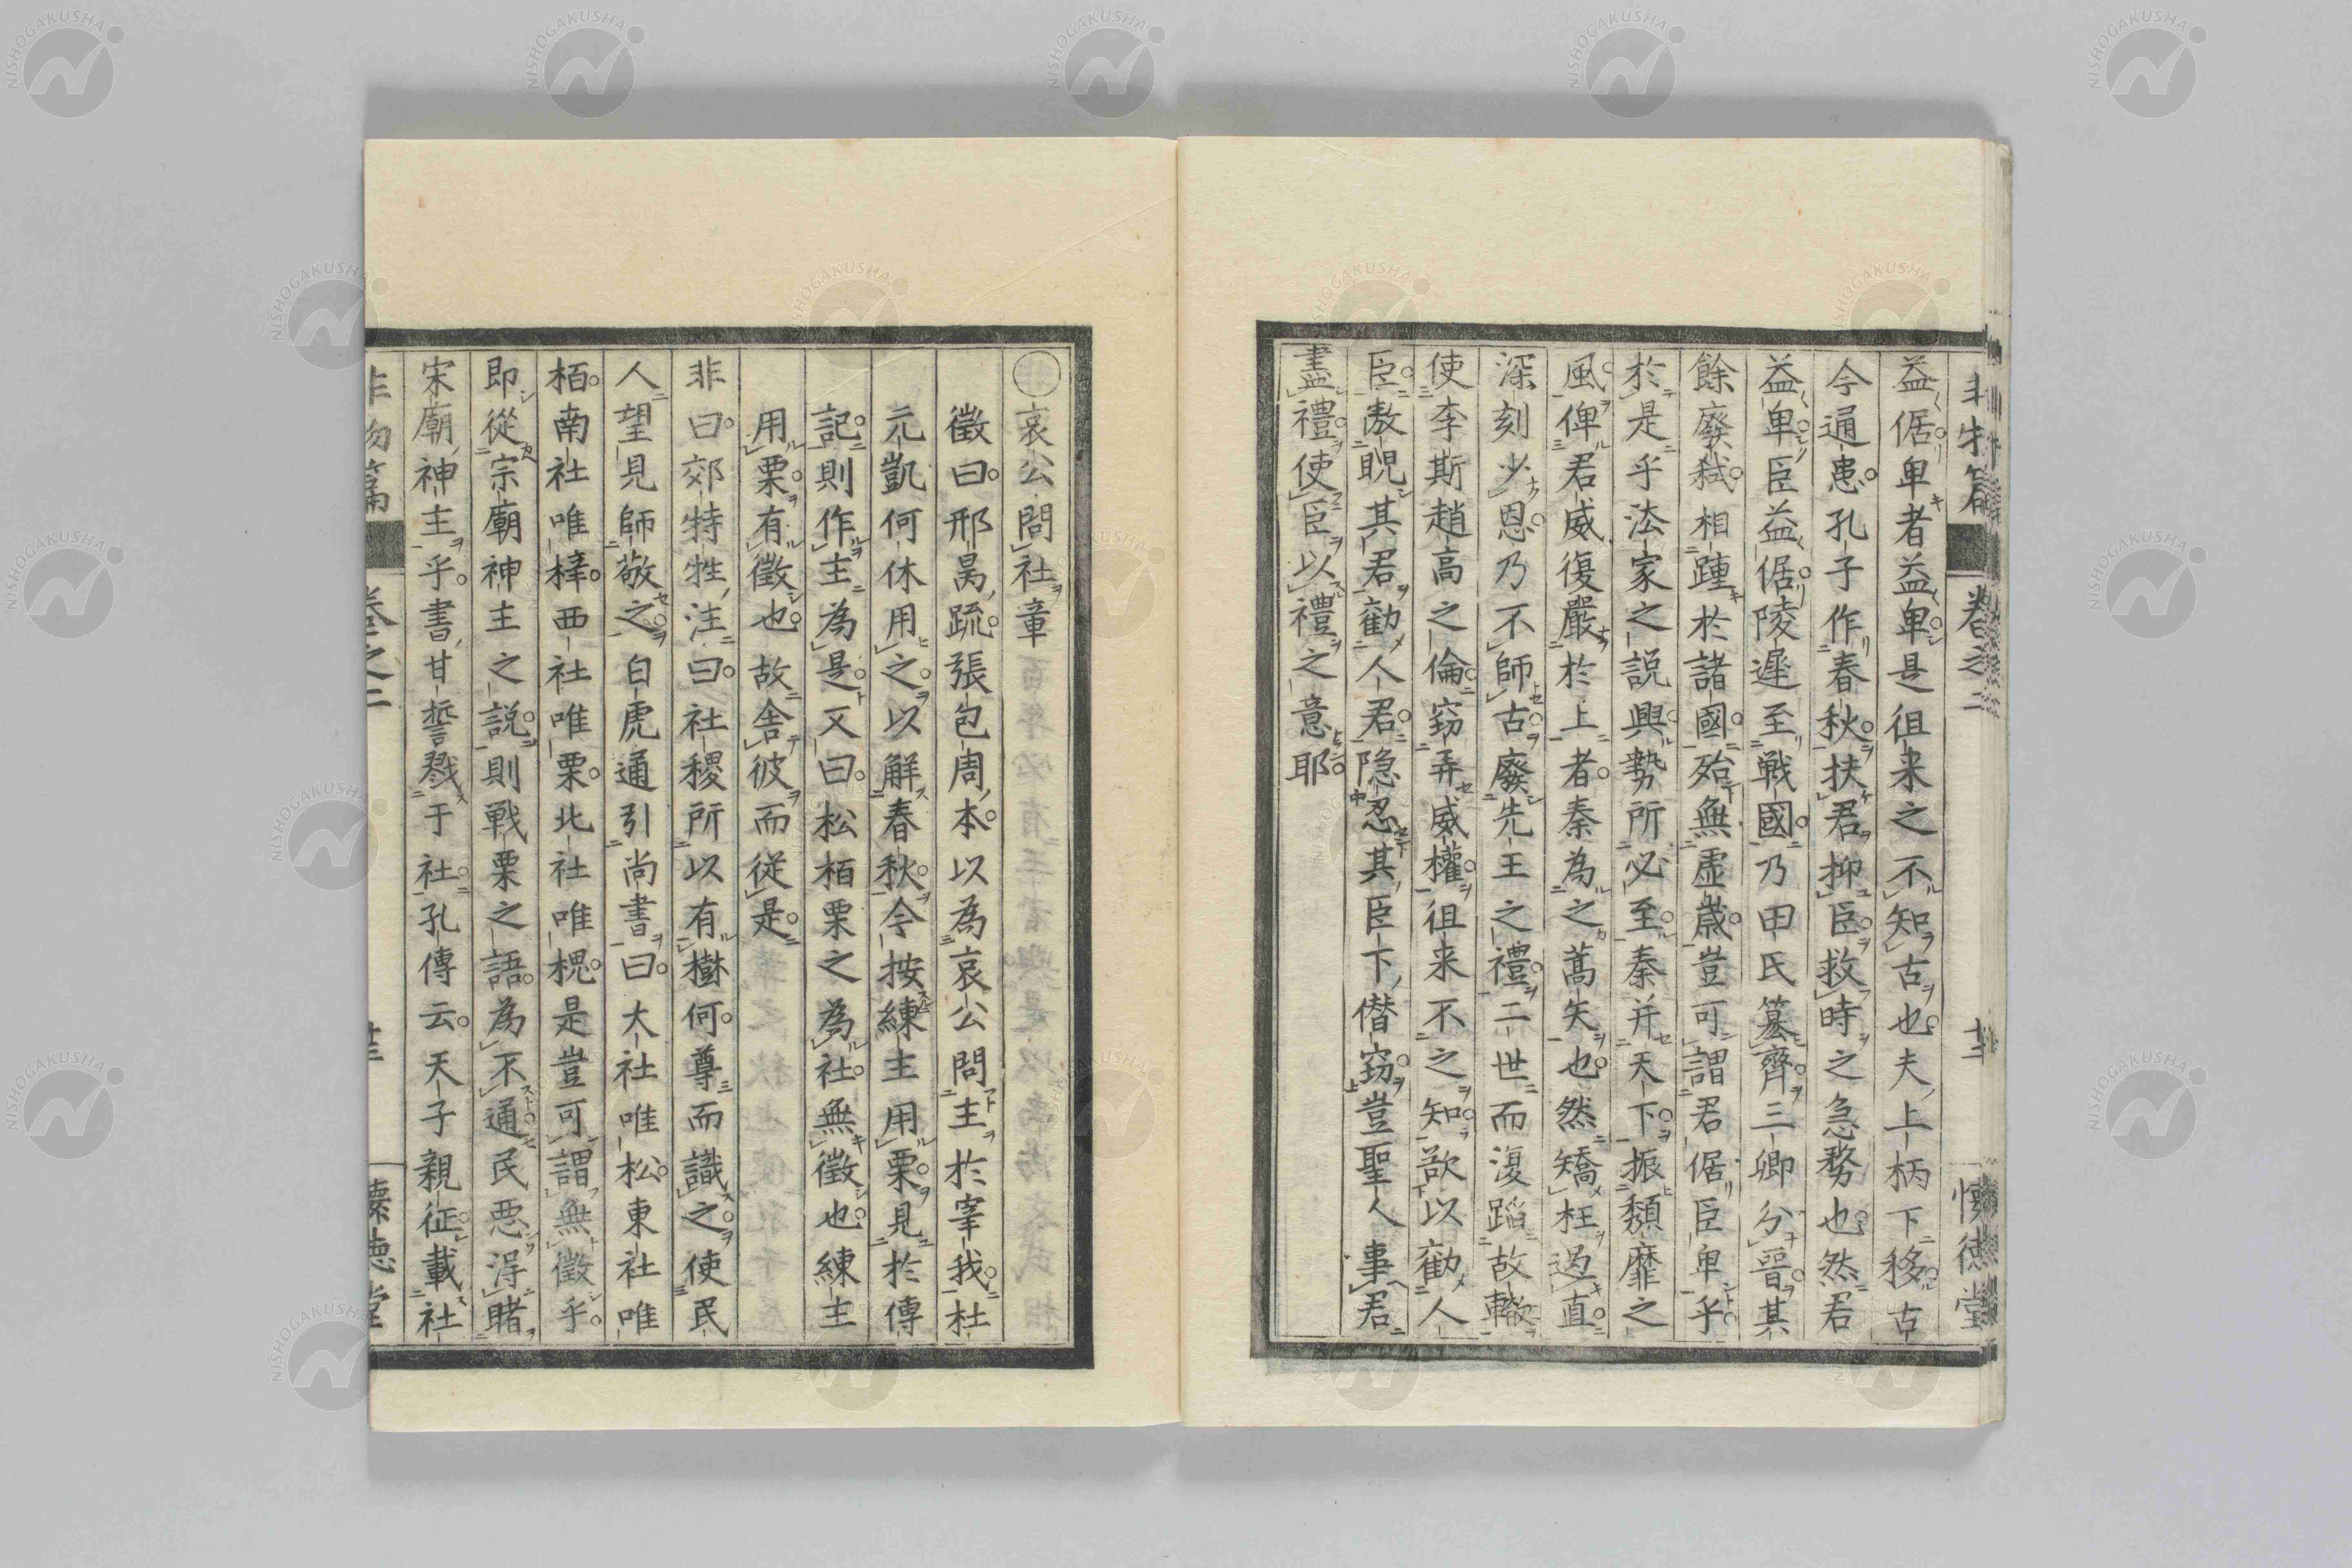 非物篇 卷之二 懷德堂
益倨卑者益卑是徂来之不知古也夫上柄下移古
今通患孔子作春秋扶君抑臣救時之急務也然君
益卑臣益倨陵遲至戰國乃田氏簒齊三卿分晉其
餘廢弑相踵於諸國殆無虚歳豈可謂君倨臣卑乎
於是乎法家之説興勢所必至秦并天下振頽靡之
風俾君威復嚴於上者秦為之蒿矢也然矯枉過直
深刻少恩乃不師古廢先王之禮二世而復蹈故轍
使李斯趙高之倫窃弄威權徂来不之知欲以勸人
臣敖睨其君勸人君隐忍其臣下僭窃豈聖人事君
盡禮使臣以禮之意耶
哀公問社章
徵曰邢昺疏張包周本以為哀公問主於宰我杜
元凱何休用之以解春秋今按練主用栗見於傳
記則作主為是又曰松栢栗之為社無徵也練主
用栗有徵也故舍彼而従是
非曰郊特牲注曰社稷所以有樹何尊而識之使民
人望見師敬之白虎通引尚書曰大社唯松東社唯
栢南社唯梓西社唯栗北社唯槐是豈可謂無徵乎
即從宗廟神主之説則戰栗之語為不通民惡淂睹
宋廟神主乎書甘誓戮于社孔傳云天子親征載社
非物篇 卷之二 懷德堂
NISHOGAKUSHA